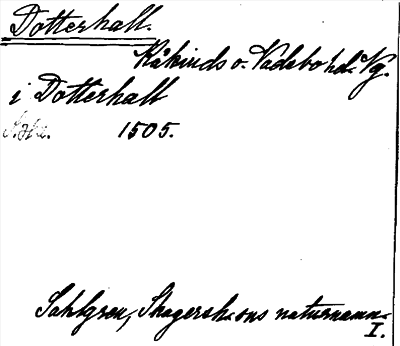 Dotterhall.
Kåkinds o. Vadsbo hd. Vg.
i Dotterhall
1505.
Sahlgren, Skagersh-ons naturnamn
I.